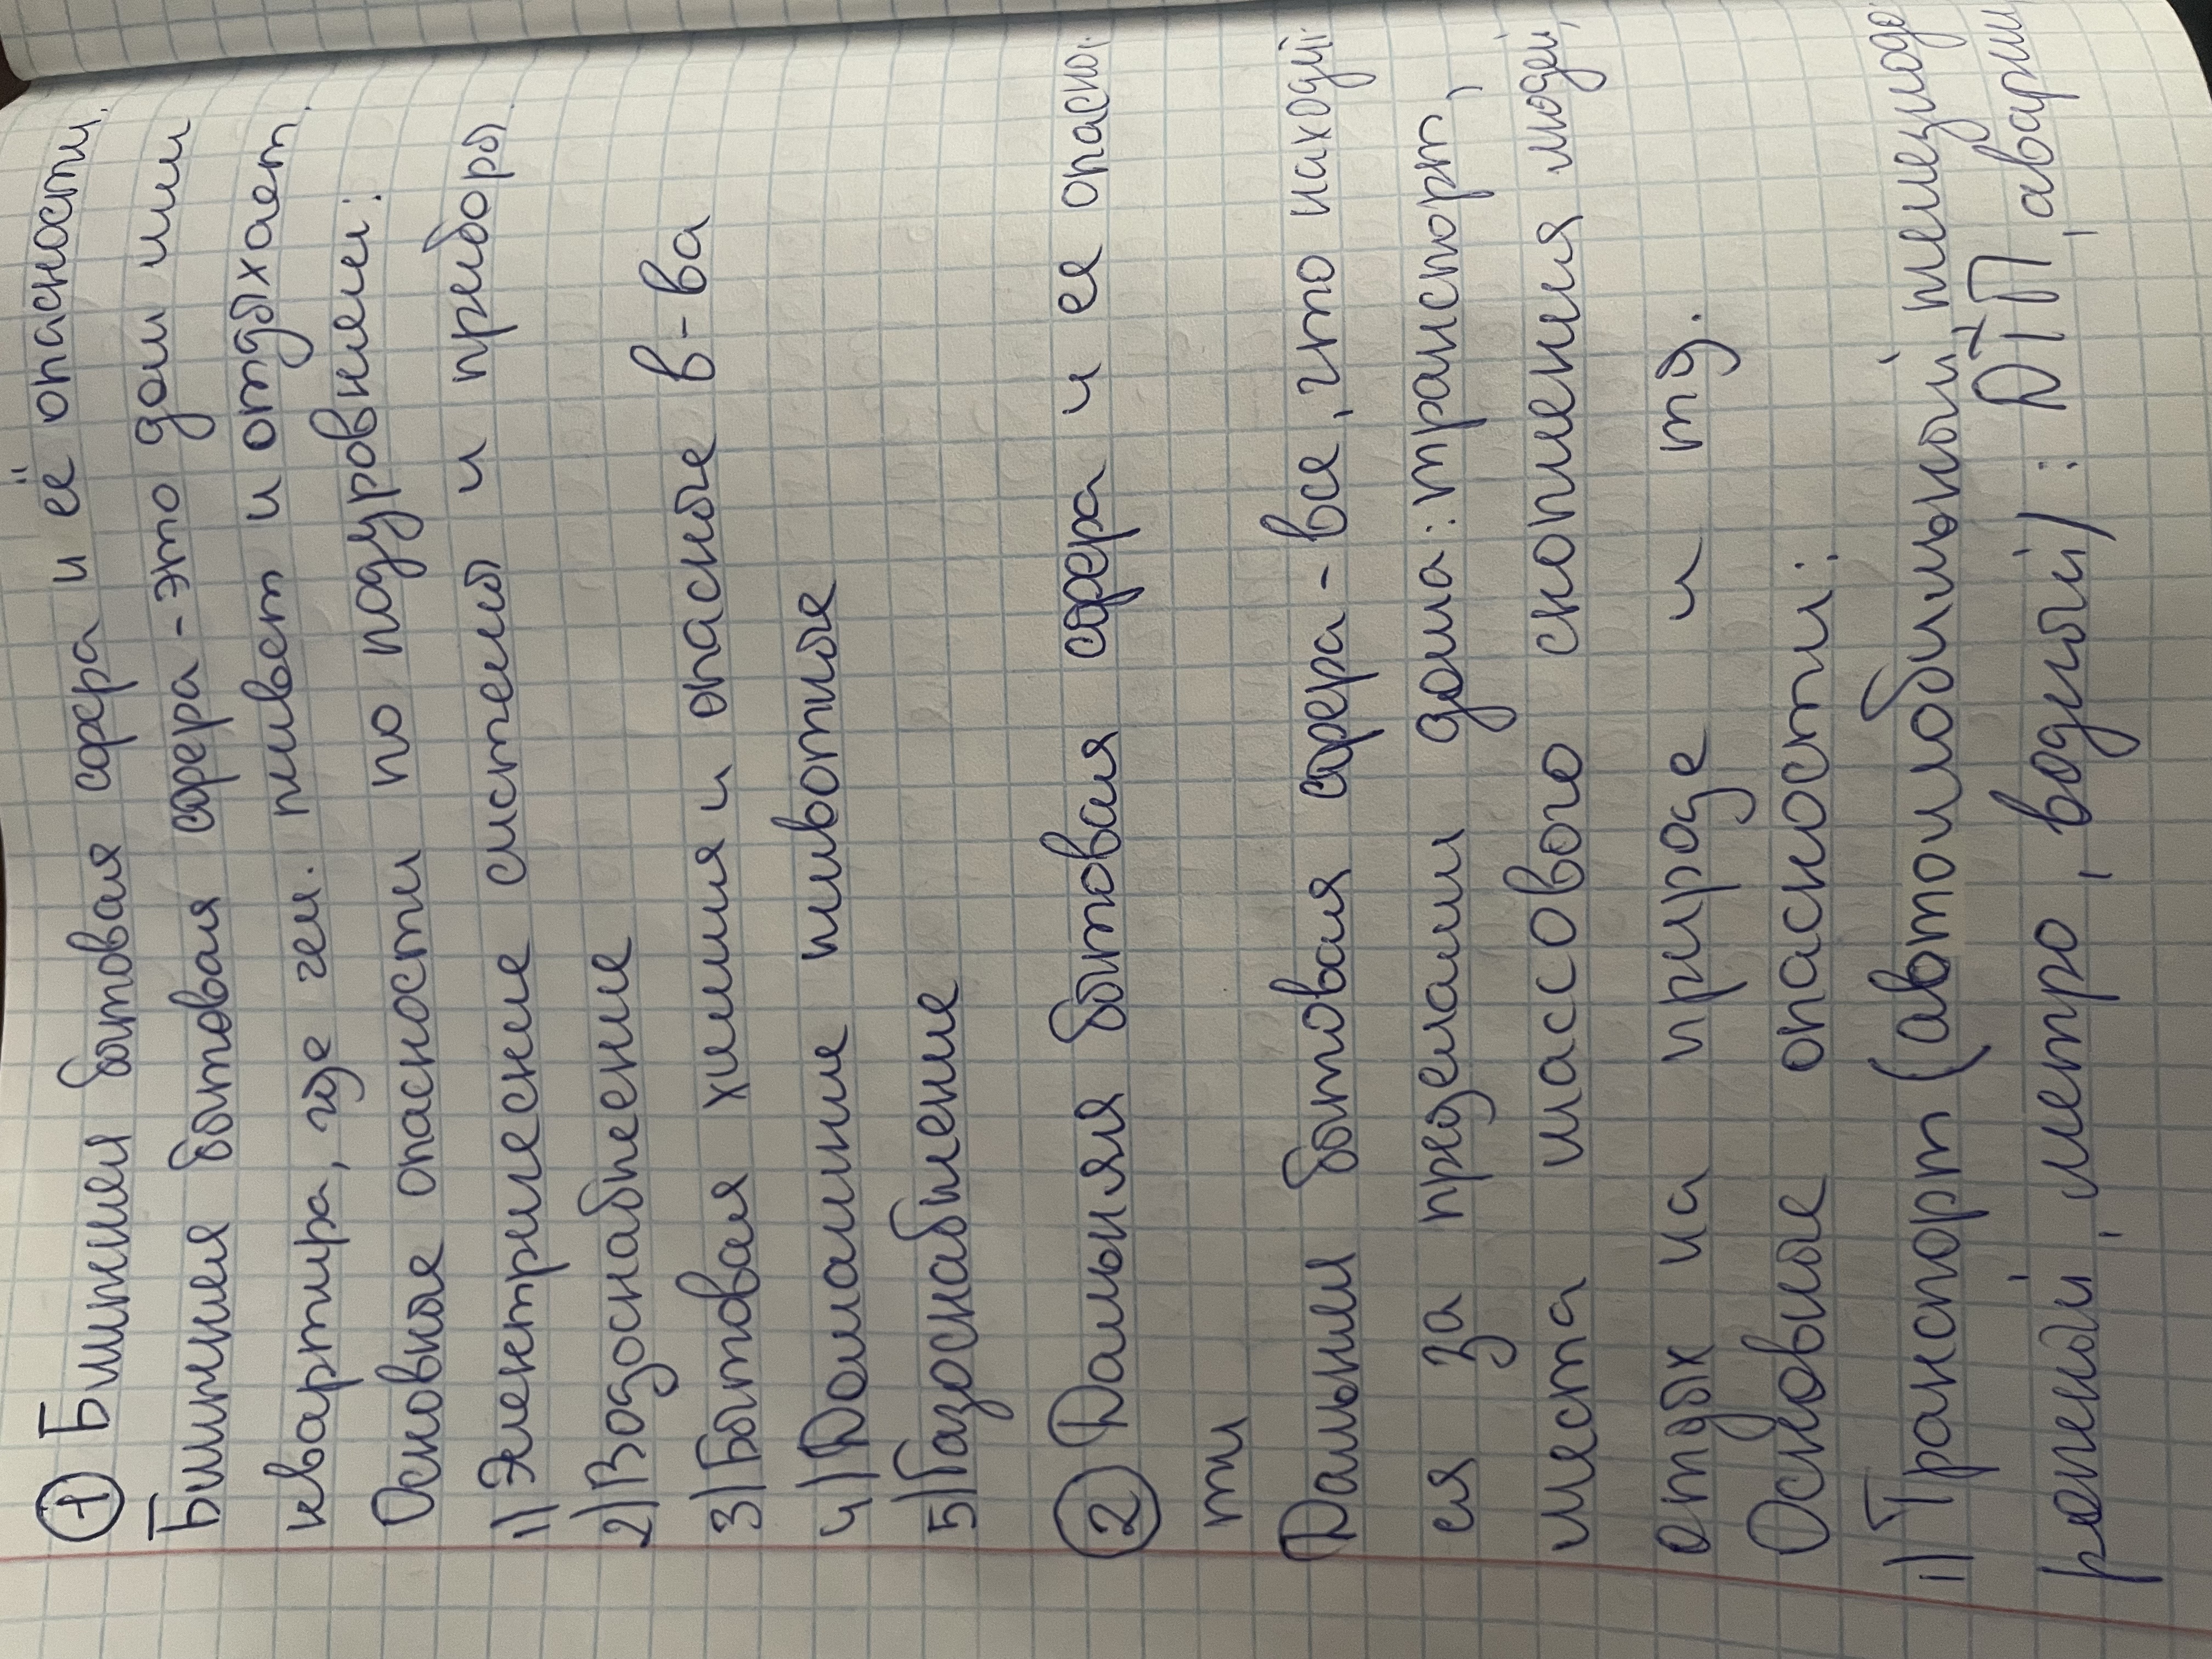 ① Ближнея бытовая сфера и её опасности.
Ближняя бытовая сфера - это дом или
квартира, где чел. живет и отдыхает.
Основные опасности по подуровнем:
1) Электрические системы и приборы.
2) Водоснабжение
3) Бытовая химия и опасные в-ва
4) Домашние животные
5) Газоснабжение
② Дальняя бытовая сфера и ее опаснос
ти
Дальния бытовая сфера - все, что находит
ся за пределами дома: транспорт,
места массового скопления людей,
отдых на природе и тд.
Основные опасности:
1) Транспорт (автомобильный, железнодо
рожный, метро, водный) : ДТП, аварии